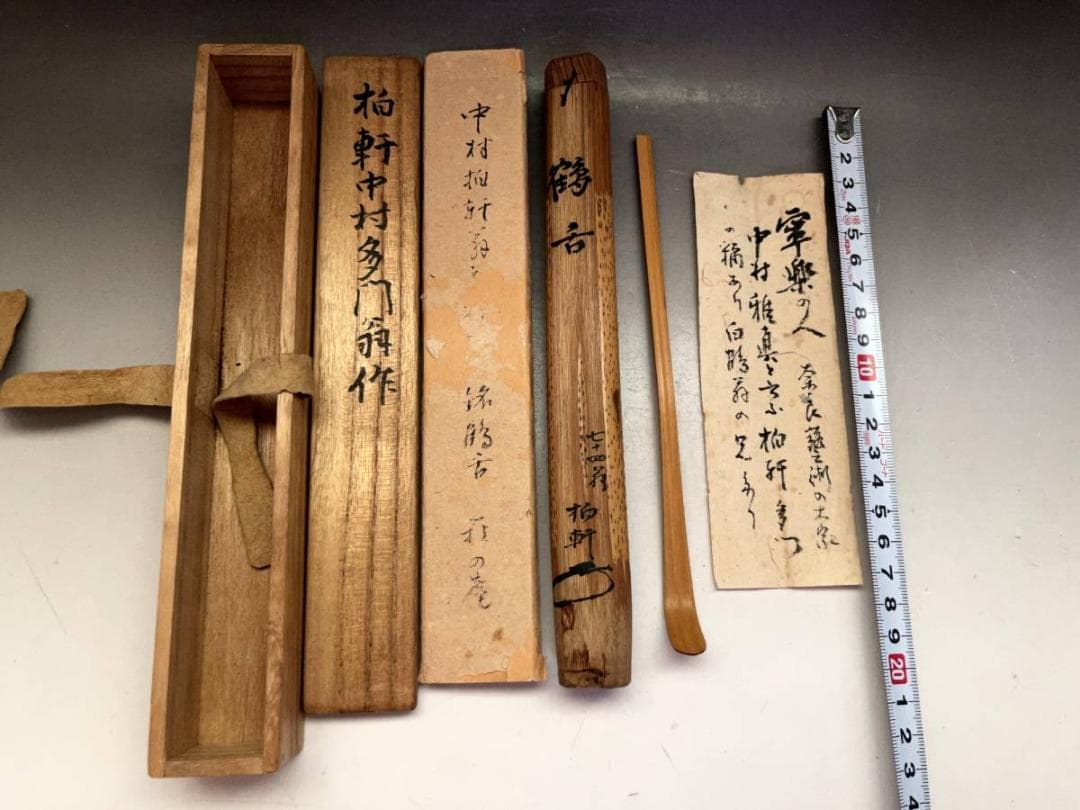 柏軒中村多門翁作
中村柏軒翁
銘鶴舌
鶴舌
七十四翁
柏軒
寧楽の人
奈良藝術の大家
中村雅真と云ふ柏軒多門
の稱あり白鶴翁の兄なり
2
3
4
5
6
7
8
9
10
1
2
3
4
5
6
7
8
9
20
1
2
3
4